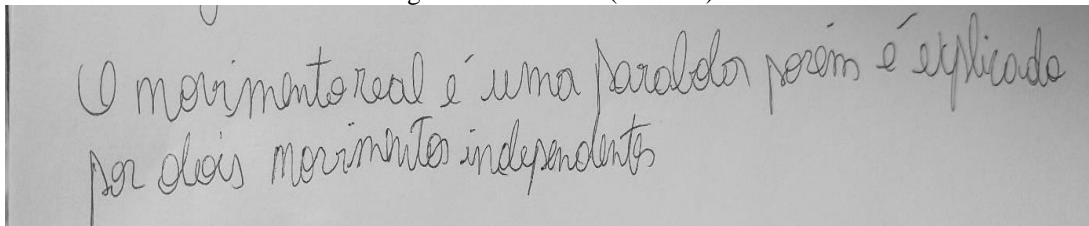 O movimento real é uma parabola porém é explicado
por dois movimentos independentes